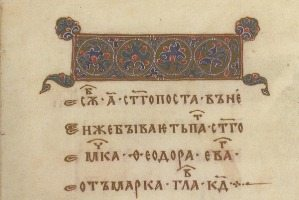 сж҃ · а҃ · ст҃гопоста · въне
нжебываетъпа ст҃го
м҃ка · ѳеодора · ева҃г
отъмарка · гла҃ · кд҃ ·